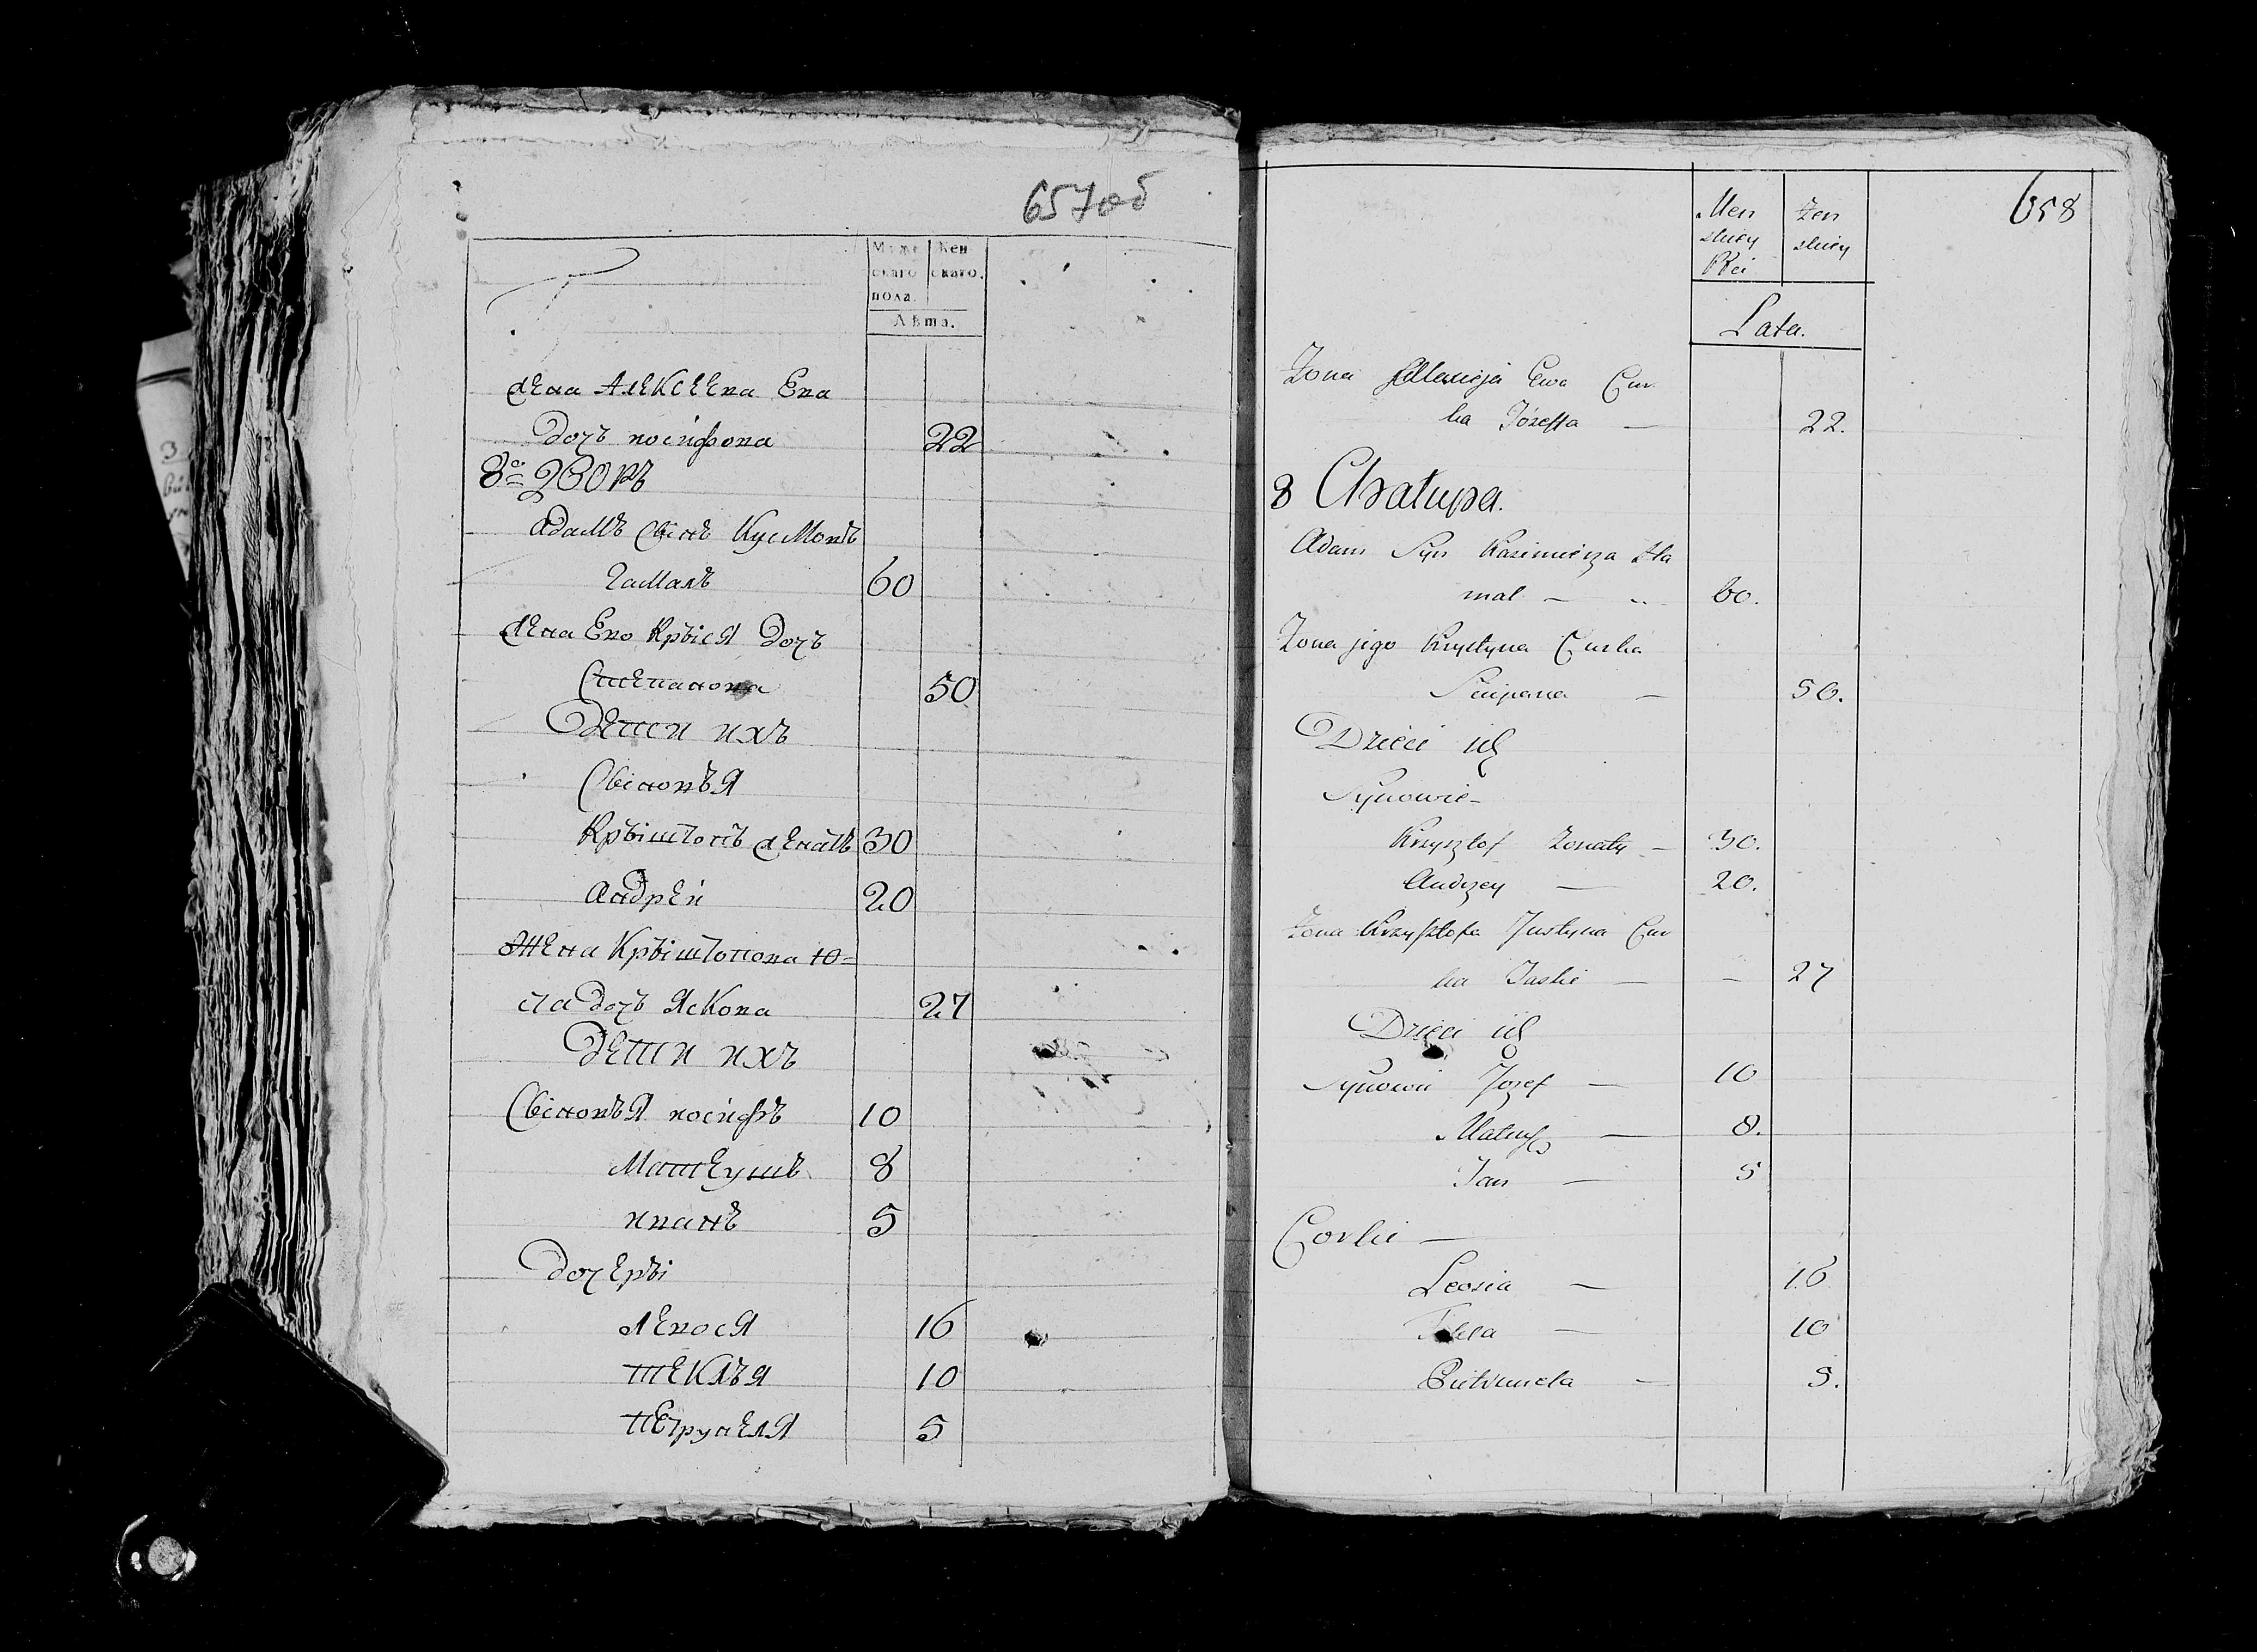 657об
Муже Жен
скаго скаго.
пола.
Лѣта.
жена Алексеева Ева
дочъ иосифова 22
8й дворъ
Адамъ сынъ
Гамалъ 60
жена Ево Крыся дочъ
Степанова 50
Дети ихъ
Сыновъя
Крыштопъ женатъ 30
Андрей 20
Жена Крыштопова Ю-
ла дочъ Яскова 27
Дети ихъ
Сыновъя иосифъ 10
Матеушъ 8
иванъ 5
дочеры
Левося 16
текля 10
петрунеля 5
658
Men Zen
skiey skiey
Płci
Lata.
Zona Allexieja Ewa Cur
ka Józeffa — 22.
8 Chałupa.
Adam Syn Kazimierza Ha
mal — 60.
Zona jego Krystyna Curka
— 50.
Dzieci ich
Synowie-
Krzysztof Zonaty — 30.
Andrzey — 20.
Zona Krzysztofa Justyna Cur
ka Jaśki — — 27
Dzieci ich
Synowie Jozef — 10
Matusz — 8.
Jan — 5
Corki —
Leosia — 16
Tekla — 10
Pietrunela — 5.